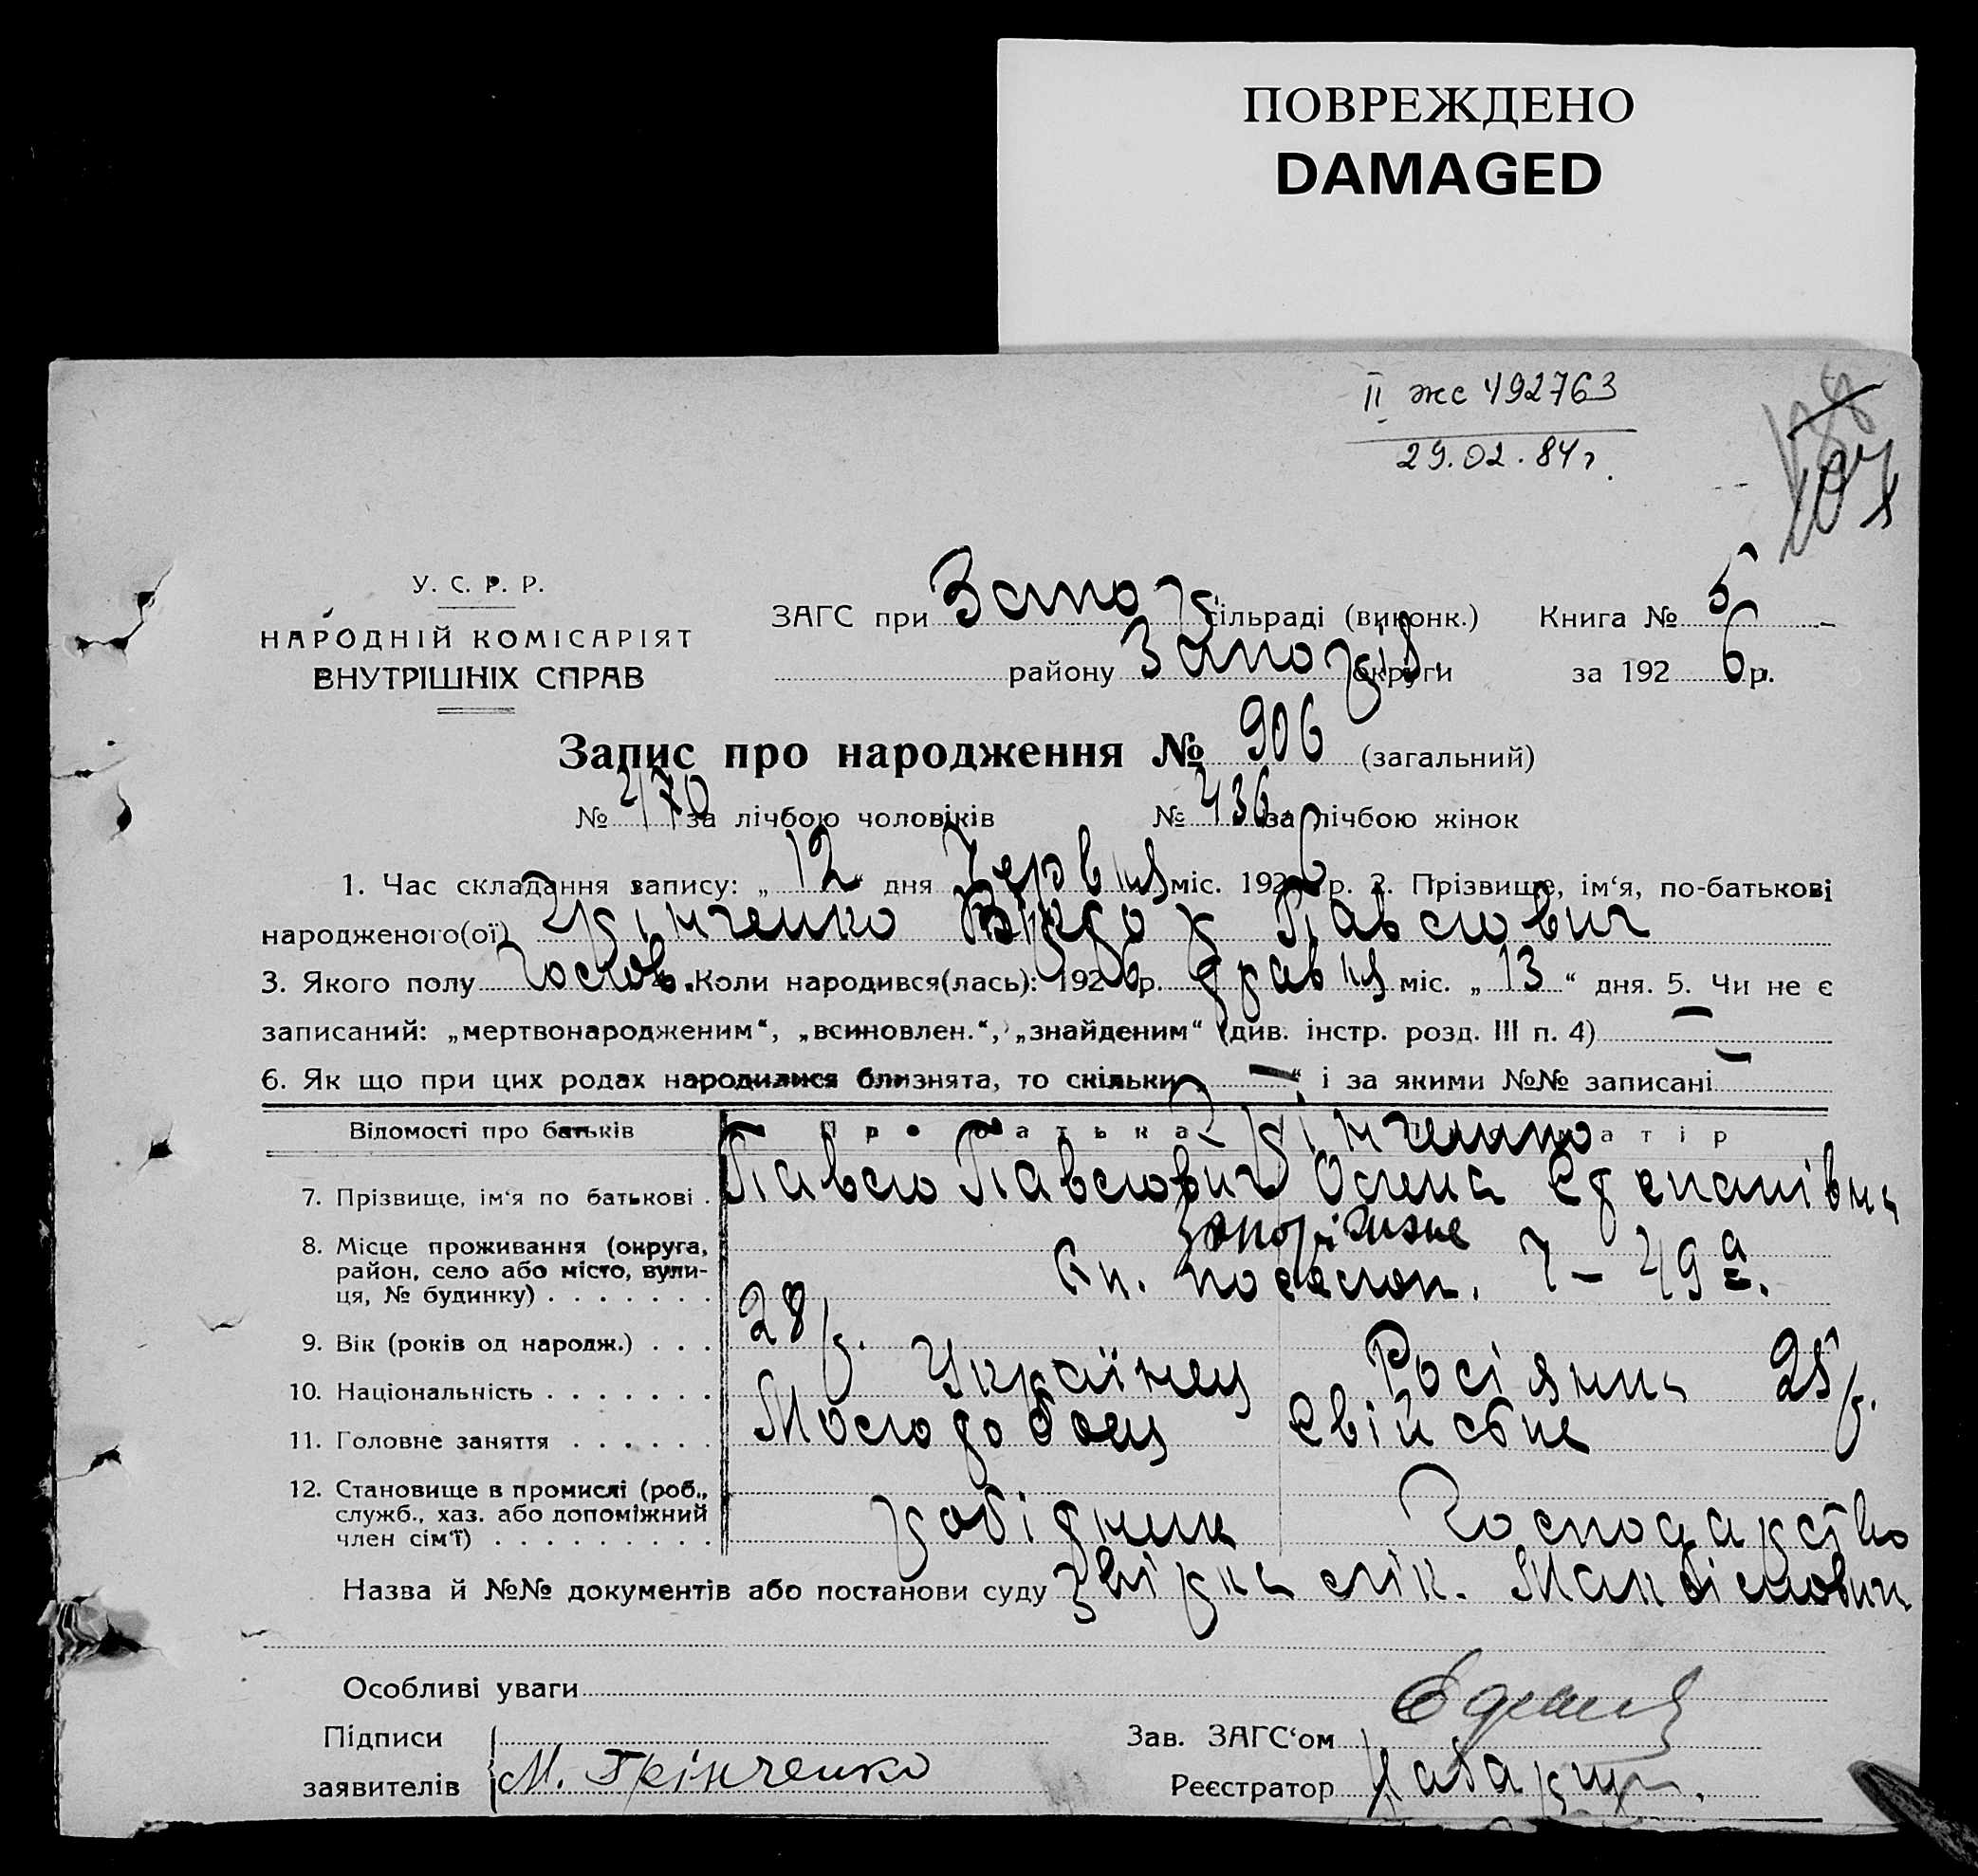 ПОВРЕЖДЕНО
DAMAGED
II жс 492763
29.02.84 г.
У. С. Р. Р.
НАРОДНІЙ КОМІСАРІЯТ
ВНУТРІШНІХ СПРАВ
ЗАГС при Запоз сільраді (виконк.) Книга № 5
району Запоріз. округи за 1926 р.
Запис про народження № 906 (загальний)
№ 470 за лічбою чоловіків № 436 за лічбою жінок
1. Час складання запису: „ 12 “ дня Червня міс. 1926 р. 2. Прізвище, ім‘я, по-батькові
народженого(ої) Грінченко Віктор Павлович
3. Якого полу Чолов. 4. Коли народився(лась): 1926 р. травня міс. „ 13 “ дня. 5. Чи не є
записаний: „мертвонародженим“, „всиновлен.“, „знайденим“ (див. інстр. розд. III п. 4) —
6. Як що при цих родах народилися близнята, то скільки „ — “ і за якими №№ записані —
Відомості про батьків Про батька Грінченко матір
7. Прізвище, ім‘я по батькові . Павло Павлович Олена Степанівна
8. Місце проживання (округа, Запоріжжє
район, село або місто, вули-
ця, № будинку) . . . . . . . 7 – 49 а.
9. Вік (років од народж.) . . . 28 р.
10. Національність . . . . . . . Українец Росіянка 25 р.
11. Головне заняття . . . . . . Молотобоец Свійське
12. Становище в промислі (роб.,
служб., хаз. або допоміжний робітник Господарство
член сім‘ї) . . . . . . . . .
Назва й №№ документів або постанови суду лік.
Особливі уваги
Підписи Зав. ЗАГС‘ом
заявителів М. Грінченко Реєстратор